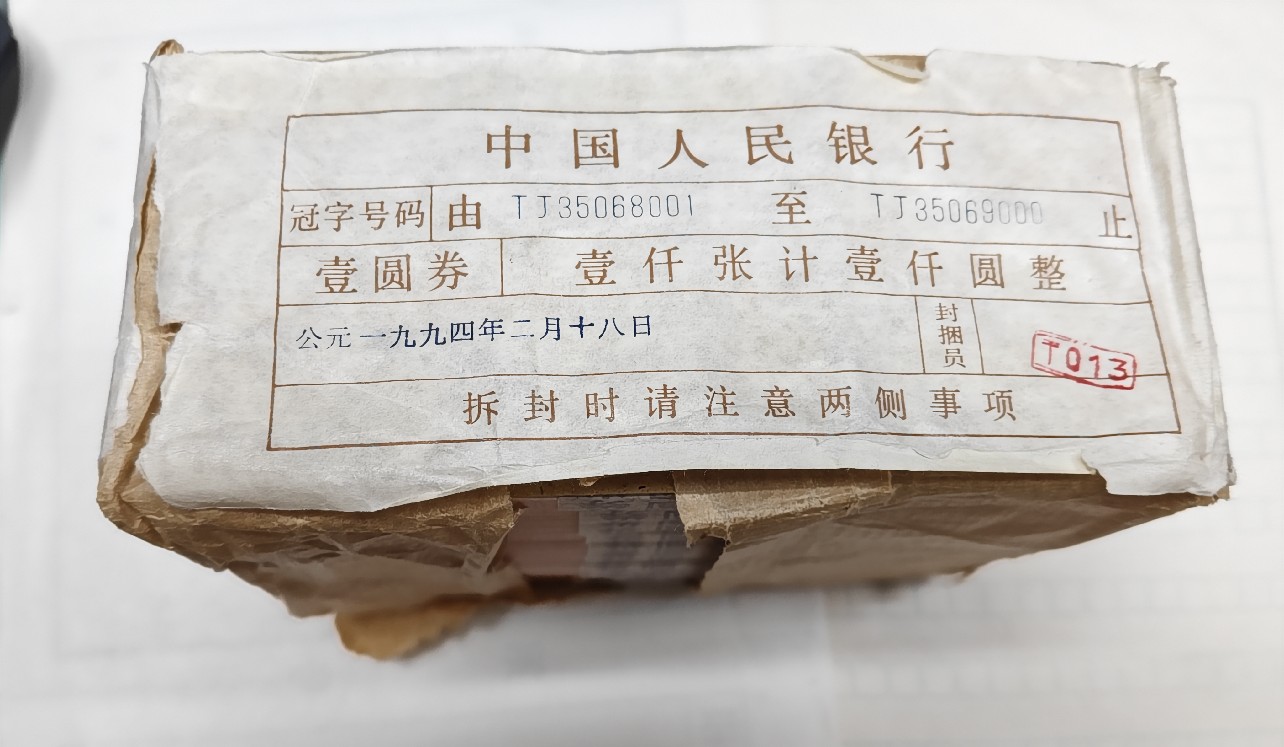 中国人民银行
冠字号码 由 TJ35068001 至 TJ35069000 止
壹圆券 壹仟张计壹仟圆整
公元一九九四年二月十八日 封捆员 T013
拆封时请注意两侧事项